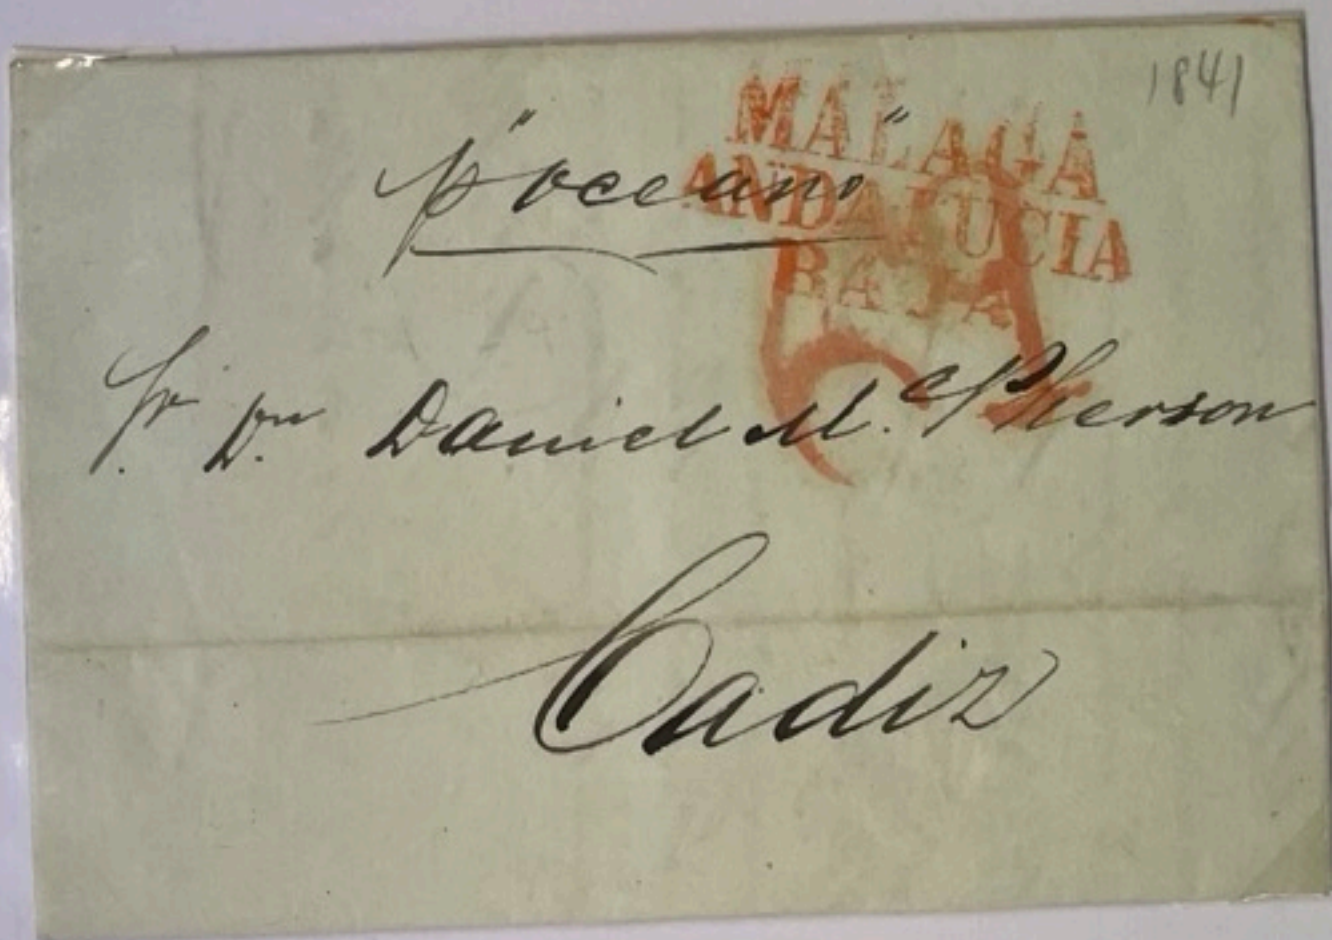 1841
MALAGA
ANDALUCIA
BAJA
p "oceano"
Sr. Dn Daniel M. cPherson
Cadiz